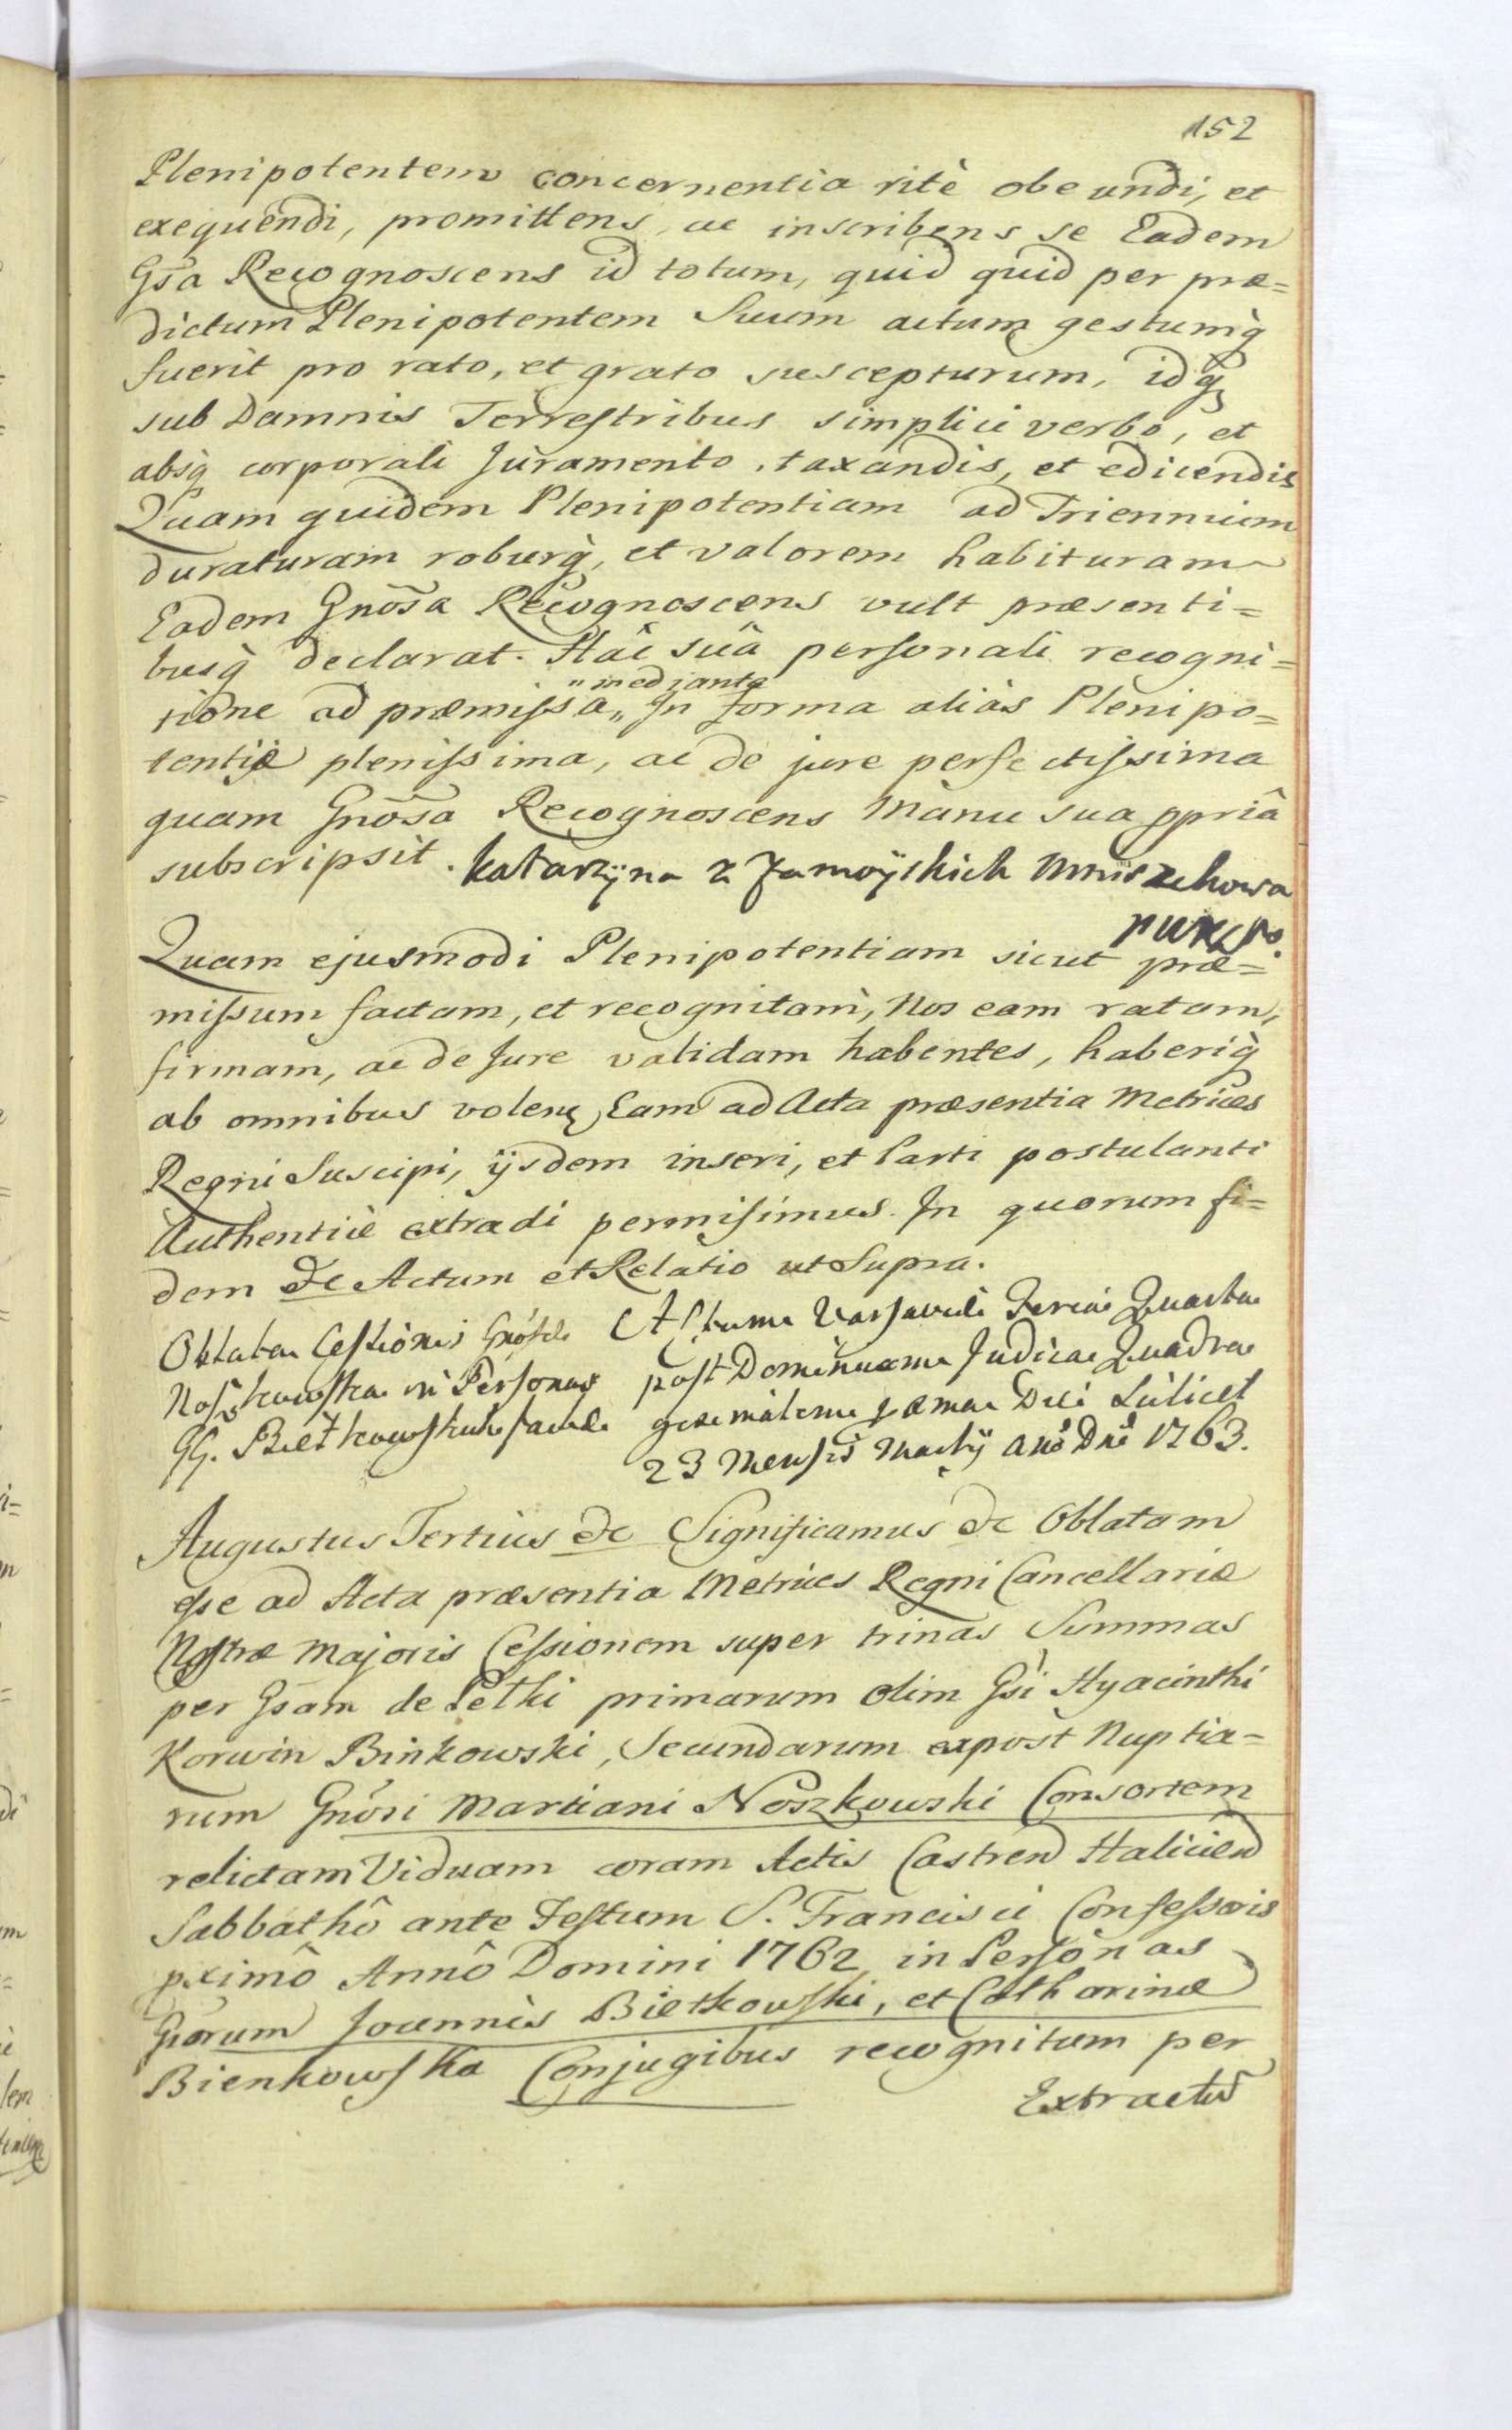 152
Plenipotentem concernentia ritè obeundi, et
exequendi, promittens, ac inscribens se Eadem
Gsa Recognoscens id totum, quid quid per præ=
dictum Plenipotentem Suum actum gestumq̀
fuerit pro rato, et grato suscepturum, idq̃
sub Damnis Terrestribus simplici verbo, et
absq̀ corporali Juramento, taxandis, et edicendis
Quam quidem Plenipotentiam ad Triennium
duraturam roburq̀, et valorem habituram
Eadem Gnõsa Recognoscens vult præsenti=
busq̀ declarat. Hâc suâ personali recogni=
„mediante
tione ad præmissa„ In forma aliàs Plenipo=
tentiæ plenissima, ac de jure perfectissima
quam Gnõsa Recognoscens Manu sua ppriâ
subscripsit. Katarzÿna z Zamoÿskich Mniszchowa
Quam ejusmodi Plenipotentiam sicut præ=
missum factam, et recognitam, Nos eam ratam,
firmam, ac de Jure validam habentes, haberiq̀
ab omnibus volen, Eam ad Acta præsentia Metrices
Regni Suscipi, ijsdem inseri, et Parti postulanti
Authenticè extradi permisimus. In quorum fi=
dem &c Actum et Relatio ut Supra.
Oblata Cessionis Gnõsæ
Noszkowska in Personas
GG. Bietkowskich facta
Actum Varsaviæ Feria Quarta
post Dominicam Judica Quadra
gesimalem pxima Die Scilicet
23 Mensis Martij Anõ Dnĩ 1763.
Augustus Tertius &c Significamus &c Oblatam
esse ad Acta præsentia Metrices Regni Cancellariæ
Nostræ Majoris Cessionem super trinas Summas
per Gsam de Pethi primarum olim Gsi Hyacinthi
Korwin Binkowski, Secundarum expost Nuptia=
rum Gnõsi Martiani Noszkowski Consortem
relictam Viduam coram Actis Castren Halicien
Sabbathô ante Festum S. Francisci Confessoris
pximô Annô Domini 1762 in Personas
Gsorum Joannis Bietkowski, et Catharinæ
Bienkowska Conjugibus recognitum per
Extractũ